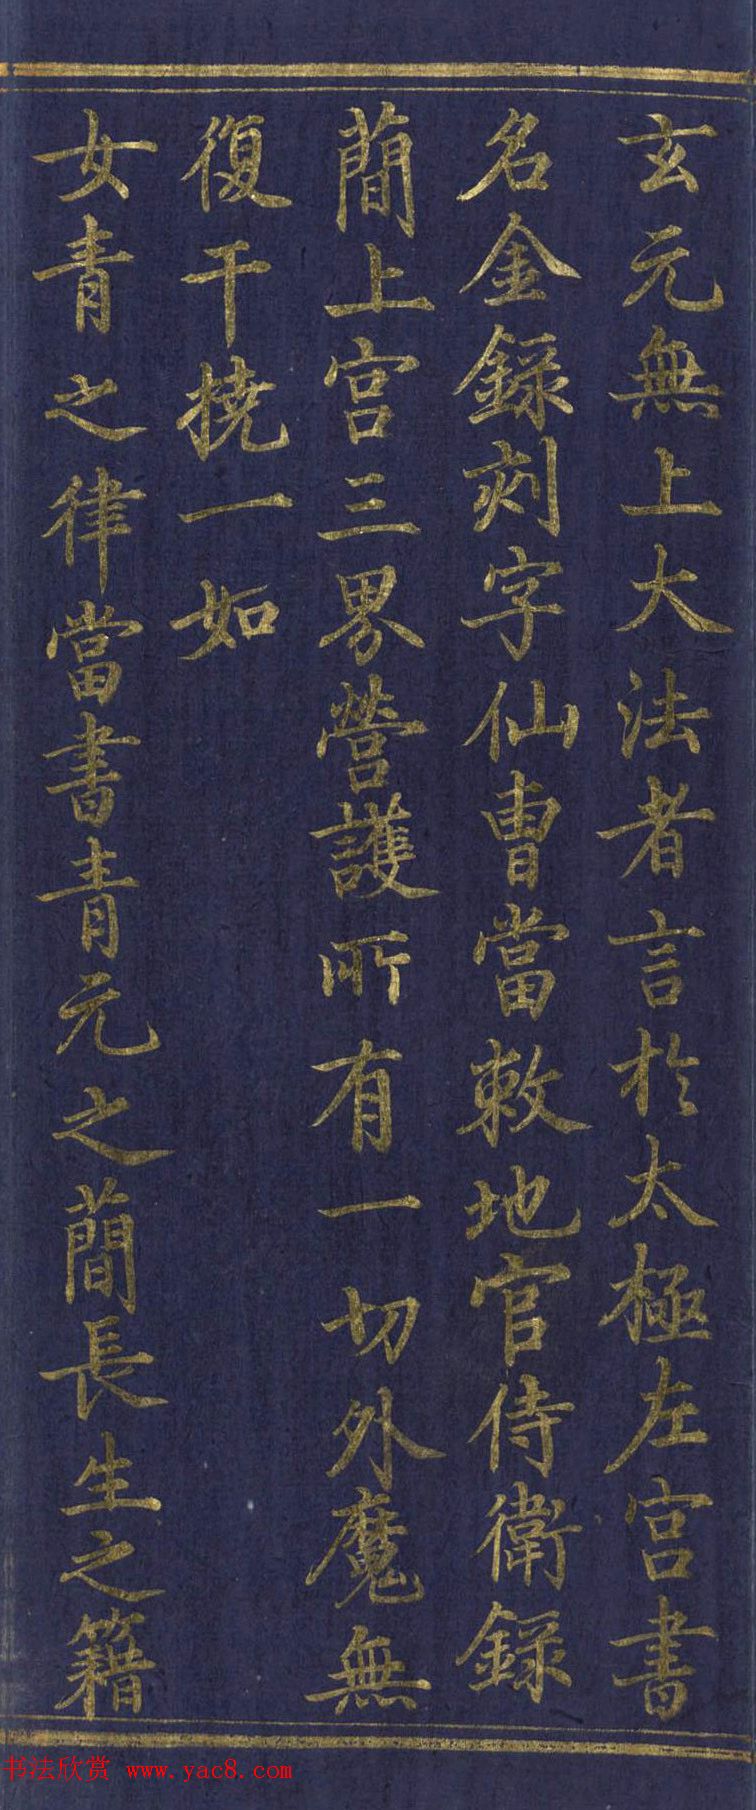 玄元無上大法者言於太極左宮書
名金録刻字仙曹當敕地官侍衛録
蕳上宮三界營護所有一切外魔無
復干撓一如
女青之律當書青元之蕳長生之籍
书法欣赏 www.yac8.com